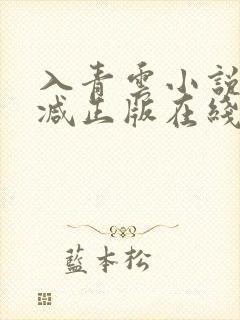 入青雲小說
减出版在綫
藍本松